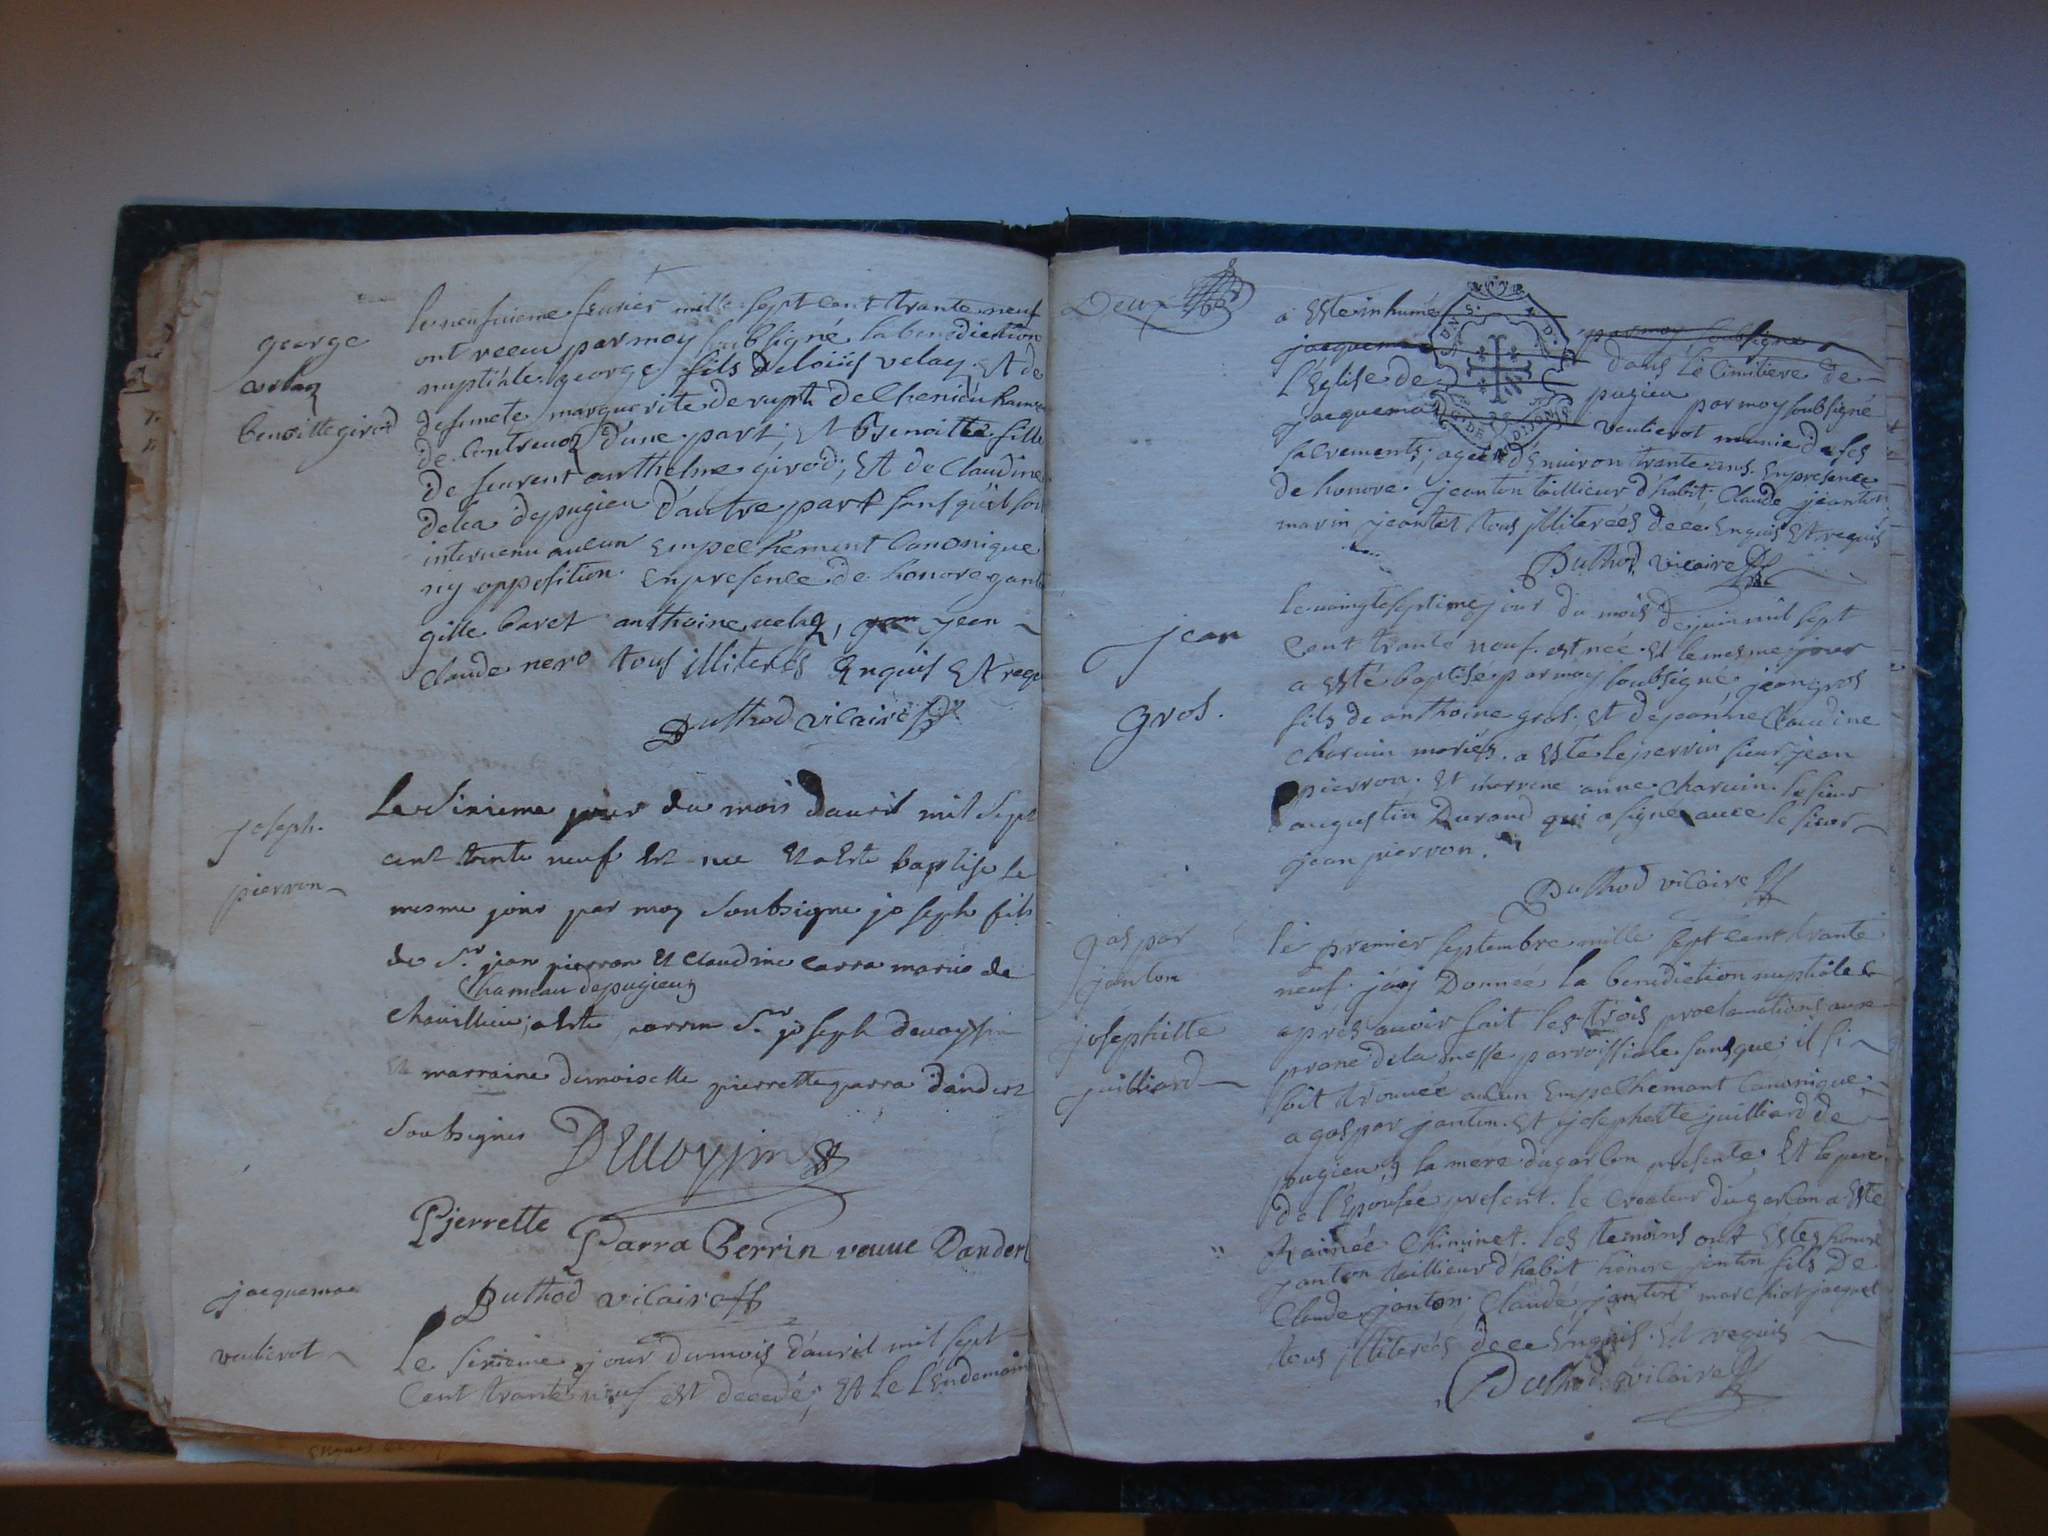 george
velay
benoitte girod
le neufuieme feurier mille sept cent trante neuf
ont receu par moy soubsigné la benediction
nuptiale george fils de loüis velay Et de
defuncte marguerite derupt
de Contreuoz d'une part; Et Benoitte fille
de feu anthelme girod, Et de Claudine
de pugieu d'autre part sans qu'il soit
interuenu aucun empeschement Canonique
ny opposition. En presence de honore
gille Caret anthoine velay, jean
Claude nero tous illiterés Enquis Et requis
Buthod vicaire
joseph
pierron
Le Sixieme jour du mois dauril mil Sept
cent trente neuf Est nee Et a Este baptise le
mesme jour par moy Soubsigne joseph fils
de Sr jean pierron Et Claudine carra mariés de
hameau de pugieu
Chauillieu, a Este parrin Sr joseph deuoyssin
Et marraine demoiselle pierrette parra dandert
Soubsignes
Deuoyssin
Pierrette Parra Perrin veuue Dandert
Buthod vicaire
jacquema
veulierot
Le Sixieme jour du mois d'auril mil sept
Cent trante neuf est decedé; Et le l'Endemain
Deux
a Este inhumé par moy soubsigné
jacquema
L'Eglise de dans le cimitiere de
pugieu par moy soubsigné
jacquema veulierot munie de ses
sacrements; agée d'Enuiron trante ans. En presence
de honore jeanton taillieur d'habit, Claude jeanton
marin jeantet tous illiterés de ce Enquis Et requis
Buthod vicaire
jean
gros.
le vaingt septieme jour du mois de juin mil sept
Cent trante neuf est née Et le mesme jour
a Esté baptisé par moy soubsigné, jean gros
fils de anthoine gros Et de jeanne Claudine
Charuin mariés. a Este le parrin sieur jean
pierron. Et marrene anne Charuin. le sieur
augustin Durand qui a signé auec le sieur
jean pierron.
Buthod vicaire
gaspar
janton
josephette
juilliard
le premier septembre mille sept cent trante
neuf. j'ay Donnée la benediction nuptiale
apres auoir fait les trois proclamations au
prone de la messe parroissiale sans que il si
soit trouuée aucun Empechemant Canonique
a gaspar janton. Et josephette juilliard de
pugieu, la mere du garcon presente, Et le pere
de l'Epousée present. le Curateur du garcon a Este
Aimée Chiminet. les temoins ont Estes honore
janton taillieur d'habit honore janton fils de
Claude janton; Claude janton marchiot jacquet
tous illiterés de ce Enquis Et requis
Buthod vicaire